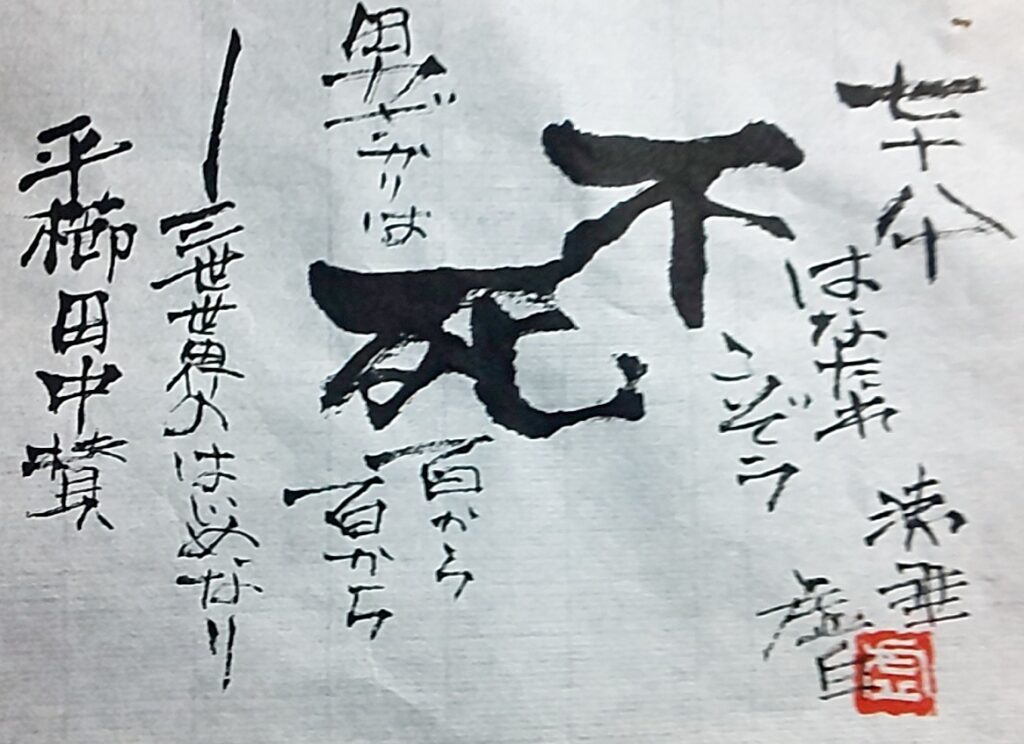 七十八十
はなたれ
こぞう
不死
男ざかりは
百から
百から
―三世世界のはじめなり
平櫛田中賛